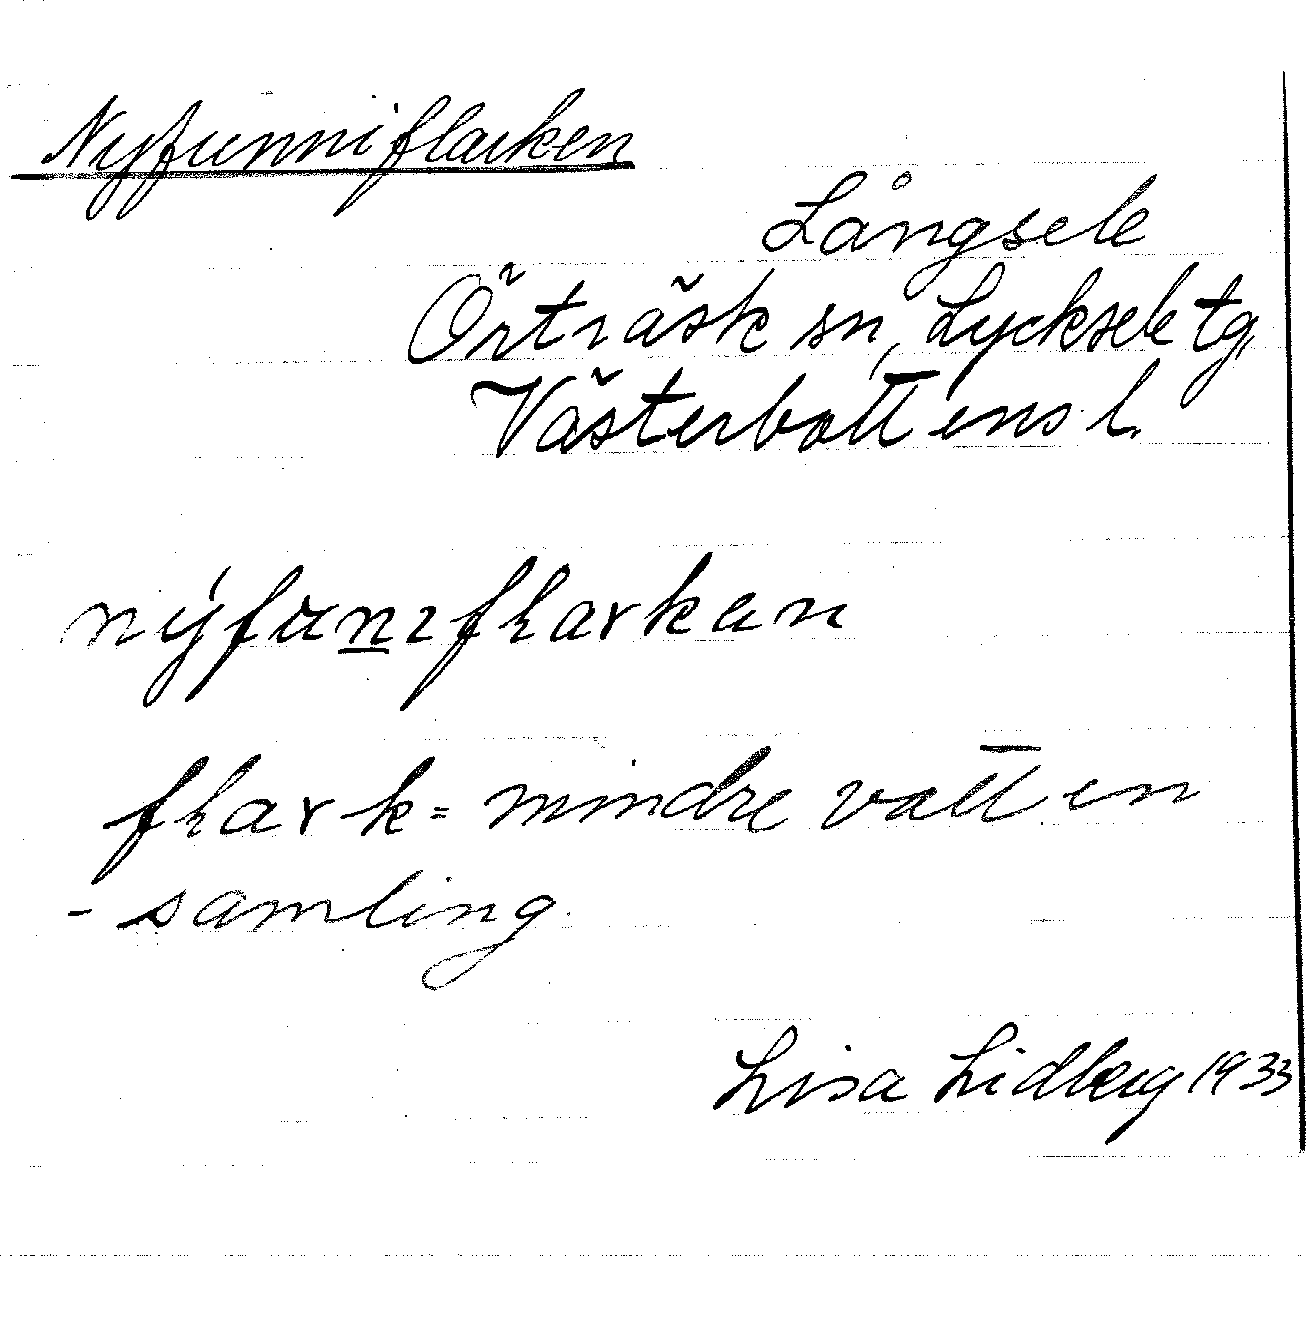 Nyfunniflarken
Långsele
Örträsk sn, Lycksele tg,
Västerbottens l.
nýfun̲ıfƚarkan
fƚark = mindre vatten
- samling.
Lisa Lidberg 1933